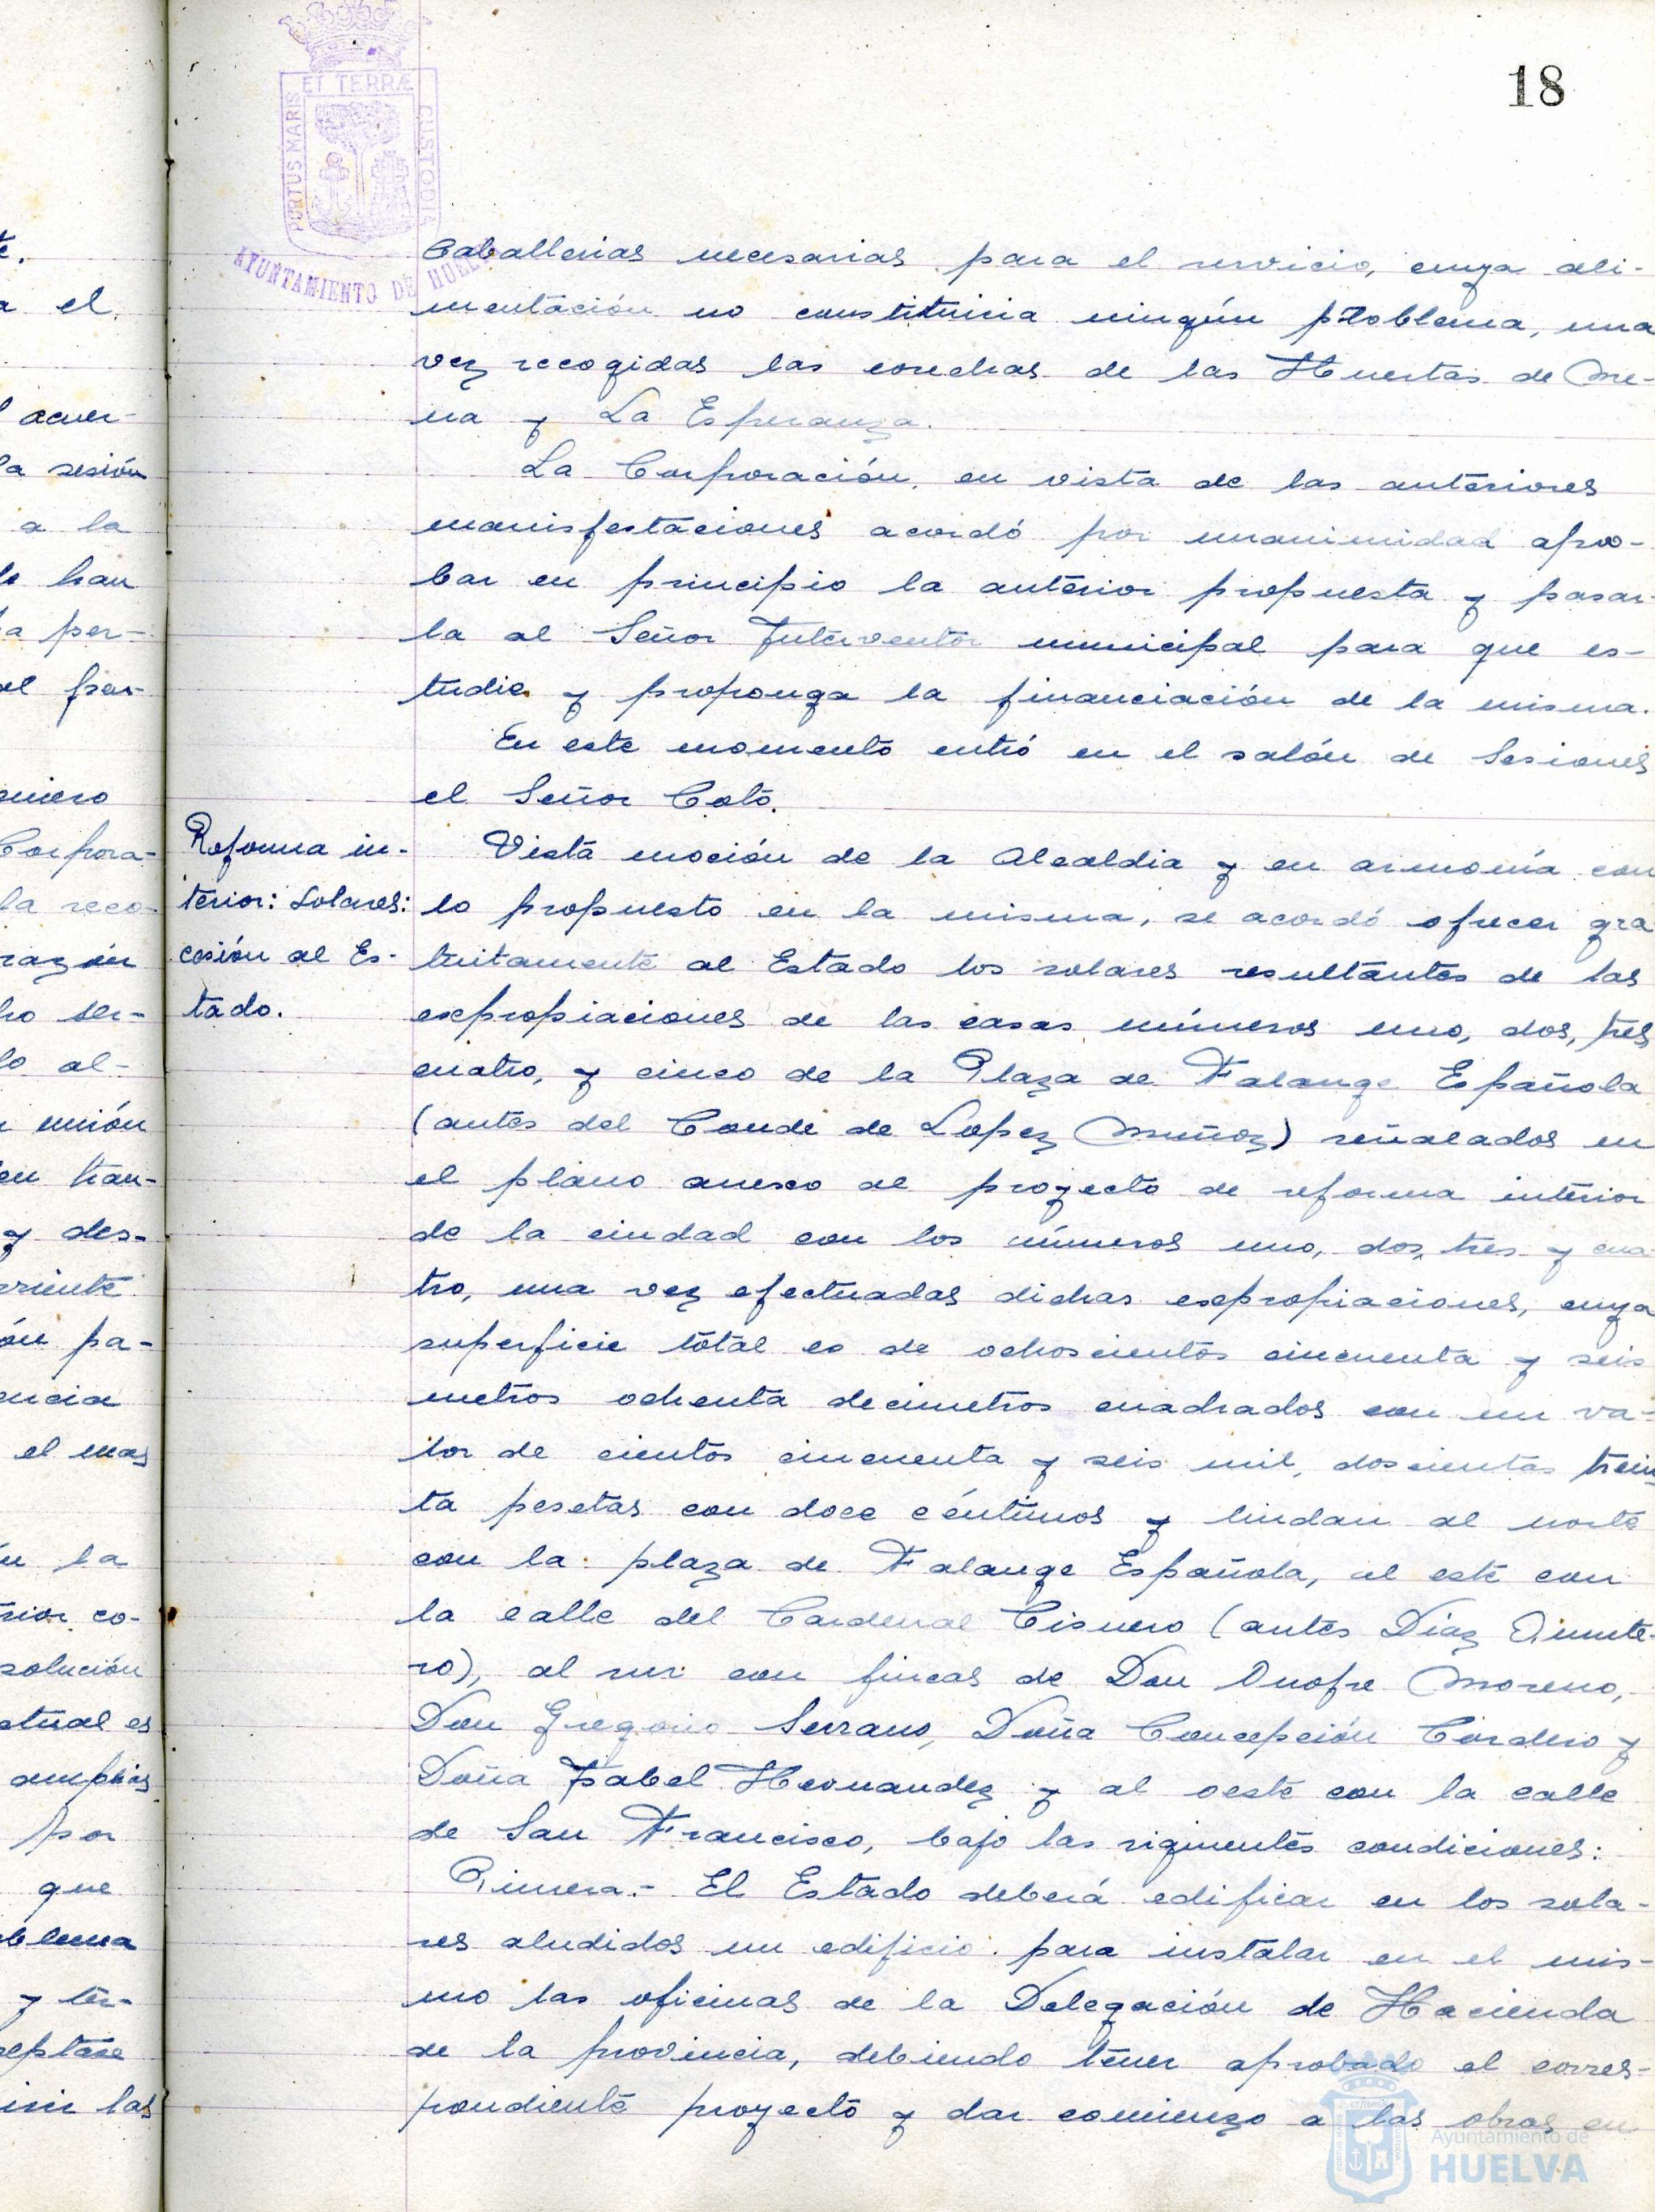 18
PORTUS MARIS ET TERRÆ CUSTODIA
AYUNTAMIENTO DE HUELVA
te.
a el
l acuer-
la sesión
a la
han
a per-
el per-
Corpora-
la reco-
razón
ho ser-
lo al-
unión
en tran-
y des-
rriente
ón pa-
encia
el mas
la
rior co-
solución
actual es
amplias
por
que
blema
y ter-
las
caballerias necesarias para el servicio, cuya ali-
mentación no constituiria ningún problema, una
vez recogidas las cosechas de las Huertas de Me-
na y La Esperanza.
La Corporación, en vista de las anteriores
manisfestaciones acordó por unanimidad apro-
bar en principio la anterior propuesta y pasar-
la al Señor Interventor municipal para que es-
tudie y proponga la financiación de la misma.
En este momento entró en el salón de Sesiones
el Señor Coto.
Reforma in-
terior: Solares:
cesión al Es-
tado.
Vista moción de la Alcaldia y en armonía con
lo propuesto en la misma, se acordó ofrecer gra
tuitamente al Estado los solares resultantes de las
expropiaciones de las casas números uno, dos, tres
cuatro, y cinco de la Plaza de Falange Española
(antes del Conde de Lopez Muñoz) señalados en
el plano anexo al proyecto de reforma interior
de la ciudad con los números uno, dos, tres y cua-
tro, una vez efectuadas dichas expropiaciones, cuya
superficie total es de ochoscientos cincuenta y seis
metros ochenta decimetros cuadrados con un va-
lor de cientos cincuenta y seis mil, doscientas trein
ta pesetas con doce céntimos y lindan al norte
con la plaza de Falange Española, al este con
la calle del Cardenal Cisnero (antes Diaz Quinte-
ro), al sur con fincas de Don Onofre Moreno,
Don Gregorio Serrano, Doña Concepción Cordero y
Doña Isabel Hernandez y al oeste con la calle
de San Francisco, bajo las siguientes condiciones:
Primera.- El Estado deberá edificar en los sola-
res aludidos un edificio para instalar en el mis-
mo las oficinas de la Delegación de Hacienda
de la provincia, debiendo tener aprobado el corres-
pondiente proyecto y dar comienzo a las obras en
Ayuntamiento de
HUELVA